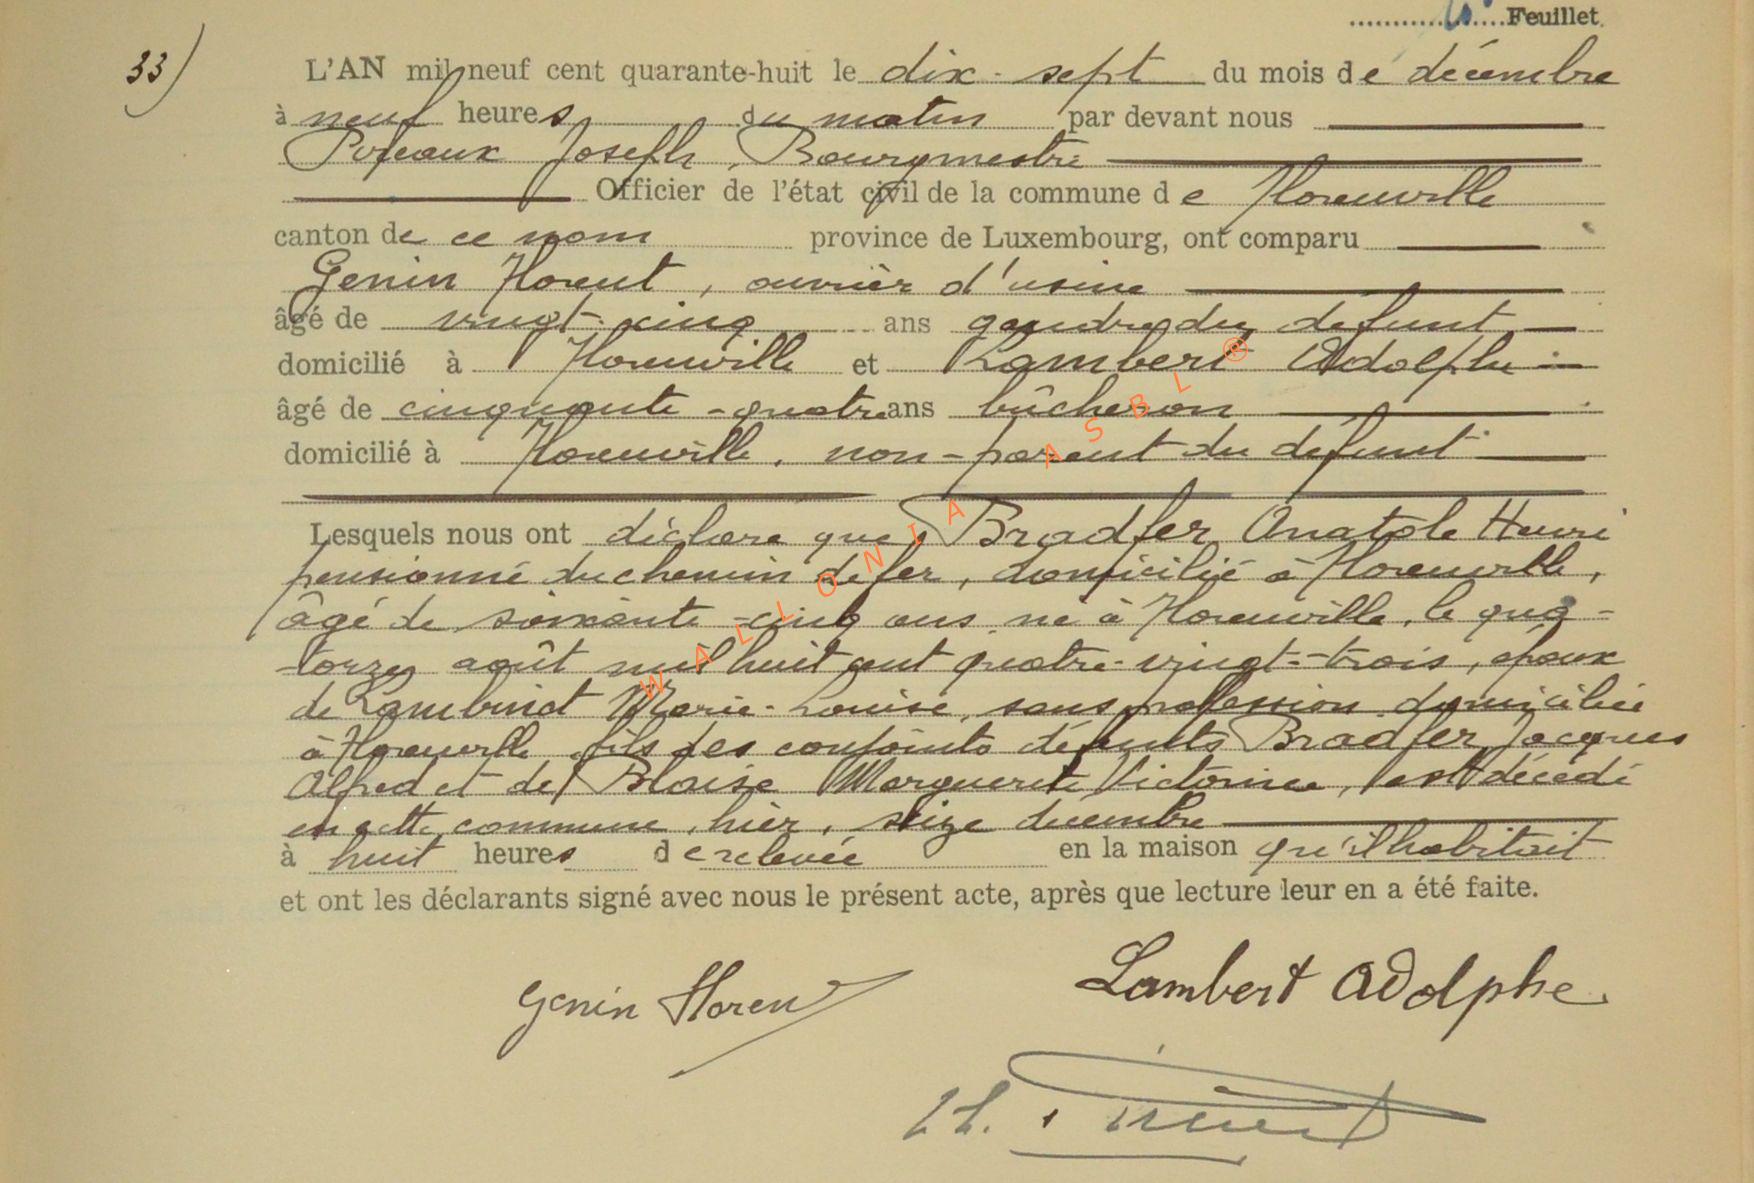 Feuillet.
33)
L'AN mil neuf cent quarante-huit le dix-sept du mois de décembre
à neuf heures du matin par devant nous
Puteaux Joseph, Bourgmestre
Officier de l'état civil de la commune de Florenville
canton de ce nom province de Luxembourg, ont comparu
Genin Florent, ouvrier d'usine
âgé de vingt-cinq ans gendre du défunt
domicilié à Florenville et Lambert Adolphe
âgé de cinquante-quatre ans bûcheron
domicilié à Florenville, non-parent du défunt
Lesquels nous ont déclaré que Bradfer Anatole Henri
pensionné du chemin de fer, domicilié à Florenville,
âgé de soixante-cinq ans, né à Florenville, le qua-
torze août mil huit cent quatre-vingt-trois, époux
de Lambinet Marie-Louise, sans profession domiciliée
à Florenville, fils des conjoints défunts Bradfer Jacques
Alfred et de Blaise Marguerite Victorine, est décédé
en cette commune, hier, seize décembre
à huit heures de relevée en la maison qu'il habitait
et ont les déclarants signé avec nous le présent acte, après que lecture leur en a été faite.
Genin Floren
Lambert Adolphe
WALLONIA ASBL ®